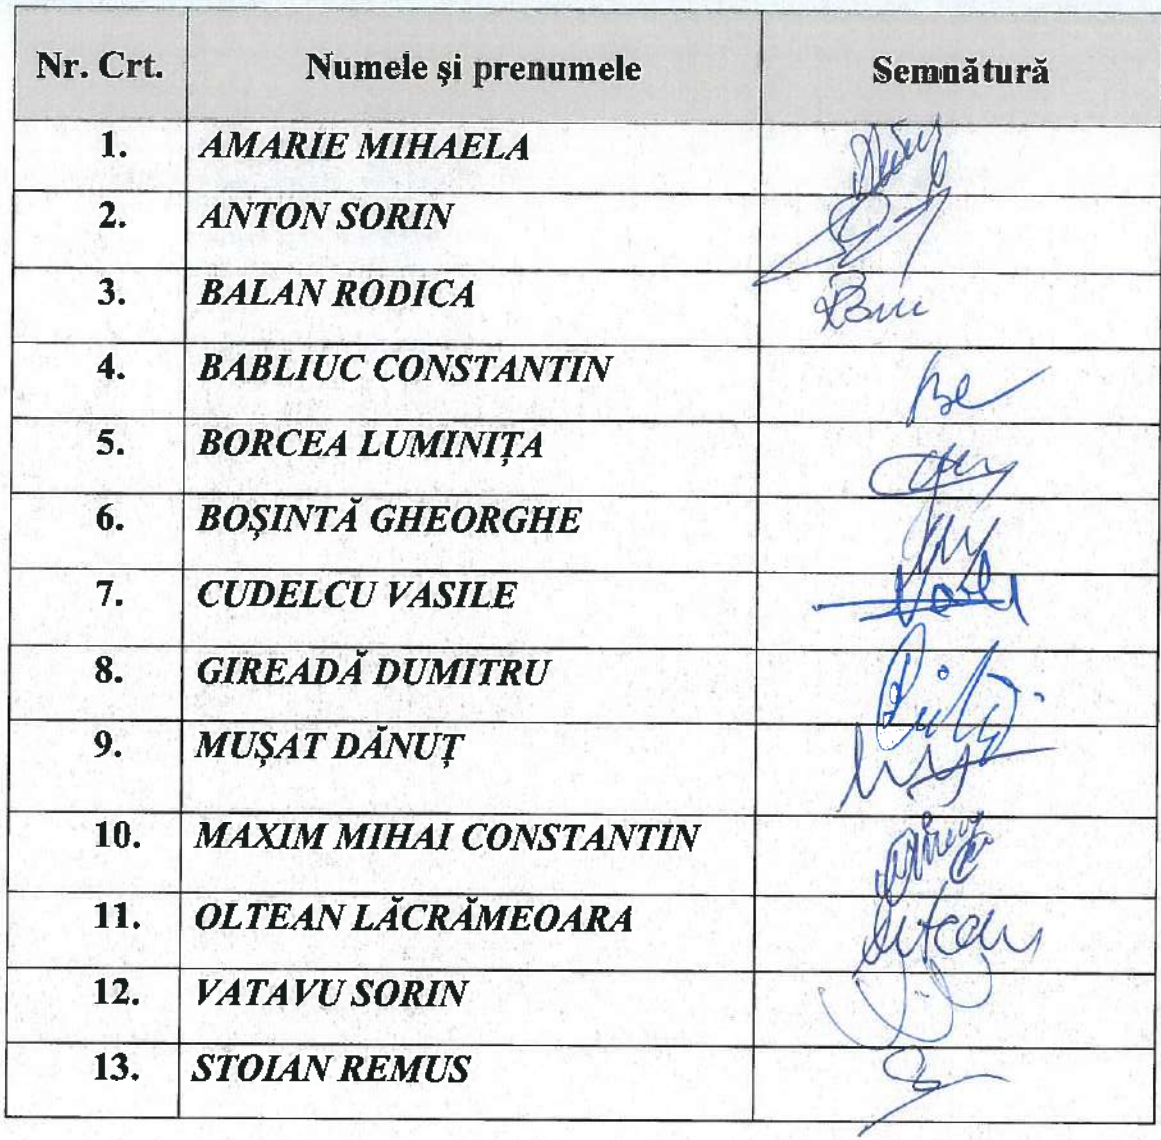 Nr. Crt. Numele și prenumele Semnătură
1. AMARIE MIHAELA
2. ANTON SORIN
3. BALAN RODICA
4. BABLIUC CONSTANTIN
5. BORCEA LUMINIȚA
6. BOȘINTĂ GHEORGHE
7. CUDELCU VASILE
8. GIREADĂ DUMITRU
9. MUȘAT DĂNUȚ
10. MAXIM MIHAI CONSTANTIN
11. OLTEAN LĂCRĂMEOARA
12. VATAVU SORIN
13. STOIAN REMUS